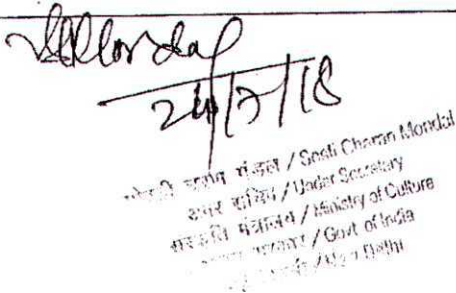 24/7/18
मंडल / Sosti Charan Mondal
अवर सचिव / Under Secretary
संस्कृति मंत्रालय / Ministry of Culture
सरकार / Govt. of India
/ New Delhi